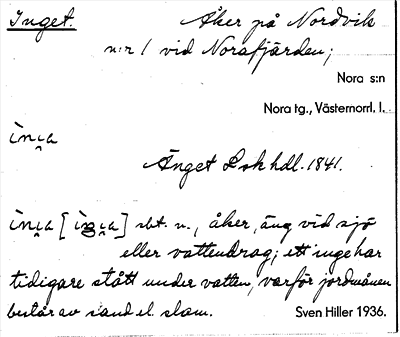 Inget. Åker på Nordvik
n:r 1 vid Norafjärden;
Nora s:n
Nora tg., Västernorrl. l.
Änget Lskhdl. 1841.
sbt. n., åker, äng vid sjö
eller vattendrag; ett inge har
tidigare stått under vatten, varför jordmånen
består av sand el. slam. Sven Hiller 1936.